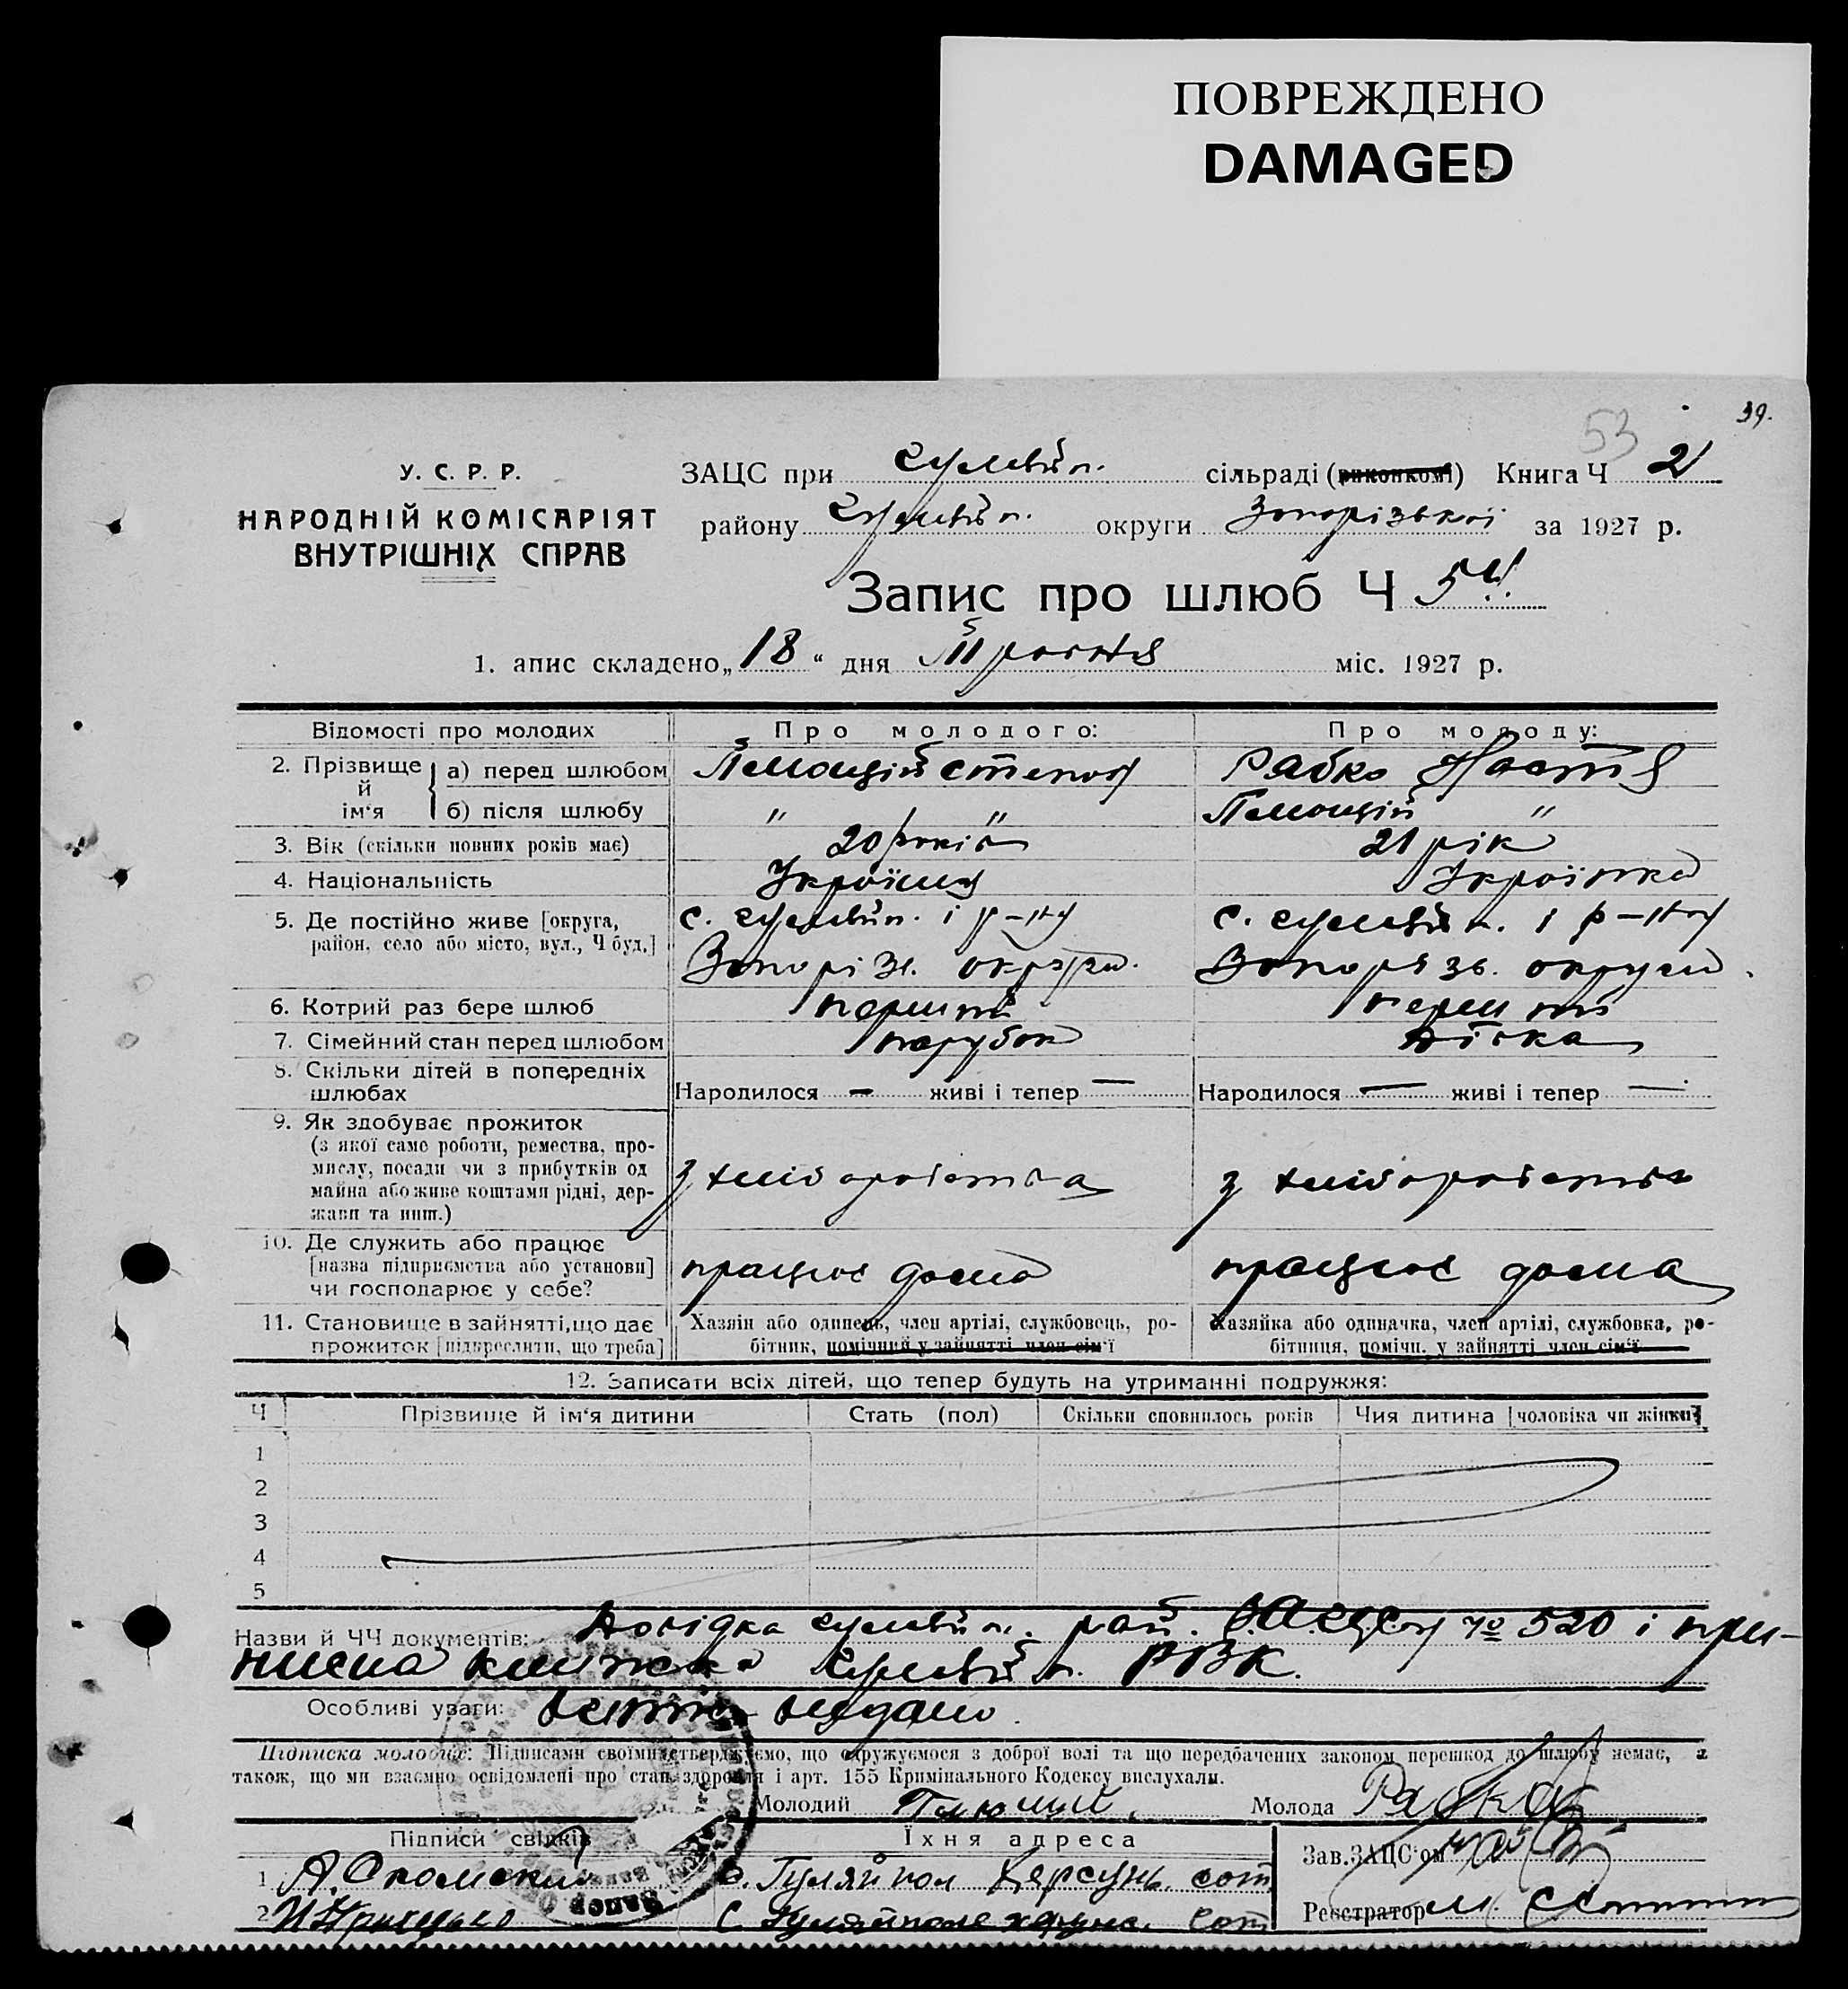 ПОВРЕЖДЕНО
DAMAGED
39.
53
У. С. Р. Р.
НАРОДНІЙ КОМІСАРІЯТ
ВНУТРІШНІХ СПРАВ
ЗАЦС при сільраді (виконкомі) Книга Ч 2
району округи Запорізької за 1927 р.
Запис про шлюб Ч 54
1. апис складено „18“ дня міс. 1927 р.
Відомості про молодих Про молодого: Про молоду:
2. Прізвище й ім‘я а) перед шлюбом Степан Рабко Настя
б) після шлюбу " " "
3. Вік (скільки повних років має) 20 років 21 рік
4. Національність Українец Українка
5. Де постійно живе [округа, район, село або місто, вул., Ч буд.] с. і р-ну с. і р-ну
Запорізь. округи. Запорізь. округи.
6. Котрий раз бере шлюб перший перший
7. Сімейний стан перед шлюбом парубок дівка
8. Скільки дітей в попередніх шлюбах Народилося — живі і тепер — Народилося — живі і тепер —
9. Як здобуває прожиток
(з якої саме роботи, ремества, про-
мислу, посади чи з прибутків од
майна або живе коштами рідні, дер-
жави та инш.)
з хліборобства з хліборобства
10. Де служить або працює
[назва підприємства або установи]
чи господарює у себе?
працює дома працює дома
11. Становище в зайнятті, що дає
прожиток [підкреслити, що треба]
Хазяїн або одинець, член артілі, службовець, ро-
бітник, помічний у зайнятті член сім‘ї
Хазяйка або одиначка, член артілі, службовка, ро-
бітниця, помічн. у зайнятті член сім‘ї
12. Записати всіх дітей, що тепер будуть на утриманні подружжя:
Ч Прізвище й ім‘я дитини Стать (пол) Скільки сповнилось років Чия дитина [чоловіка чи жінки]
1
2
3
4
5
Назви й ЧЧ документів: Довідка рай. ЗАЦСу № 520 і при-
писна книжка РВК.
Особливі уваги: видано.
Підписка молодих: Підписами своїми стверджуємо, що одружуємося з доброї волі та що передбачених законом перешкод до шлюбу немає, а
також, що ми взаємно освідомлені про стан здоровля і арт. 155 Кримінального Кодексу вислухали.
Молодий Молода Рабка
Підписи свідків Їхня адреса Зав. ЗАЦС‘ом
1 А. Скомский с. Гуляйпол Херсунь. сот
2 с Гуляйполе сот Реєстратор